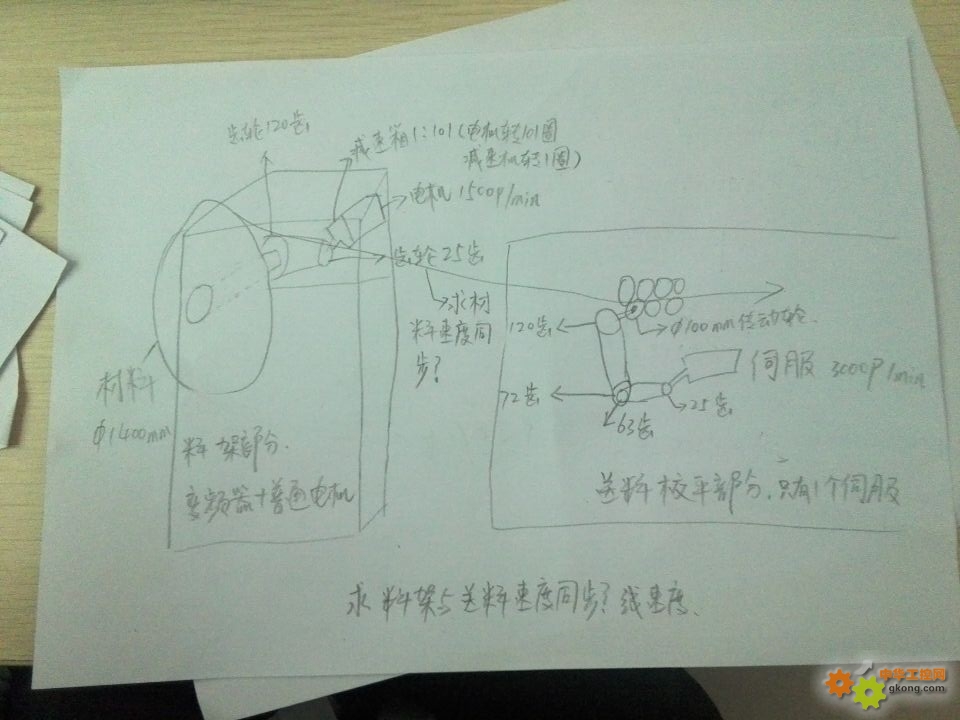 齿轮120齿
减速箱1:101(电机转101圈
减速机转1圈)
电机 1500P/min
齿轮25齿
求材
料速度同
步?
材料
Φ1400mm
料架部分.
变频器+普通电机
120齿
Φ100mm传动轮.
72齿
63齿
25齿
伺服 3000P/min
送料校平部分.只有1个伺服
求料架与送料速度同步?线速度.
中华工控网
gkong.com